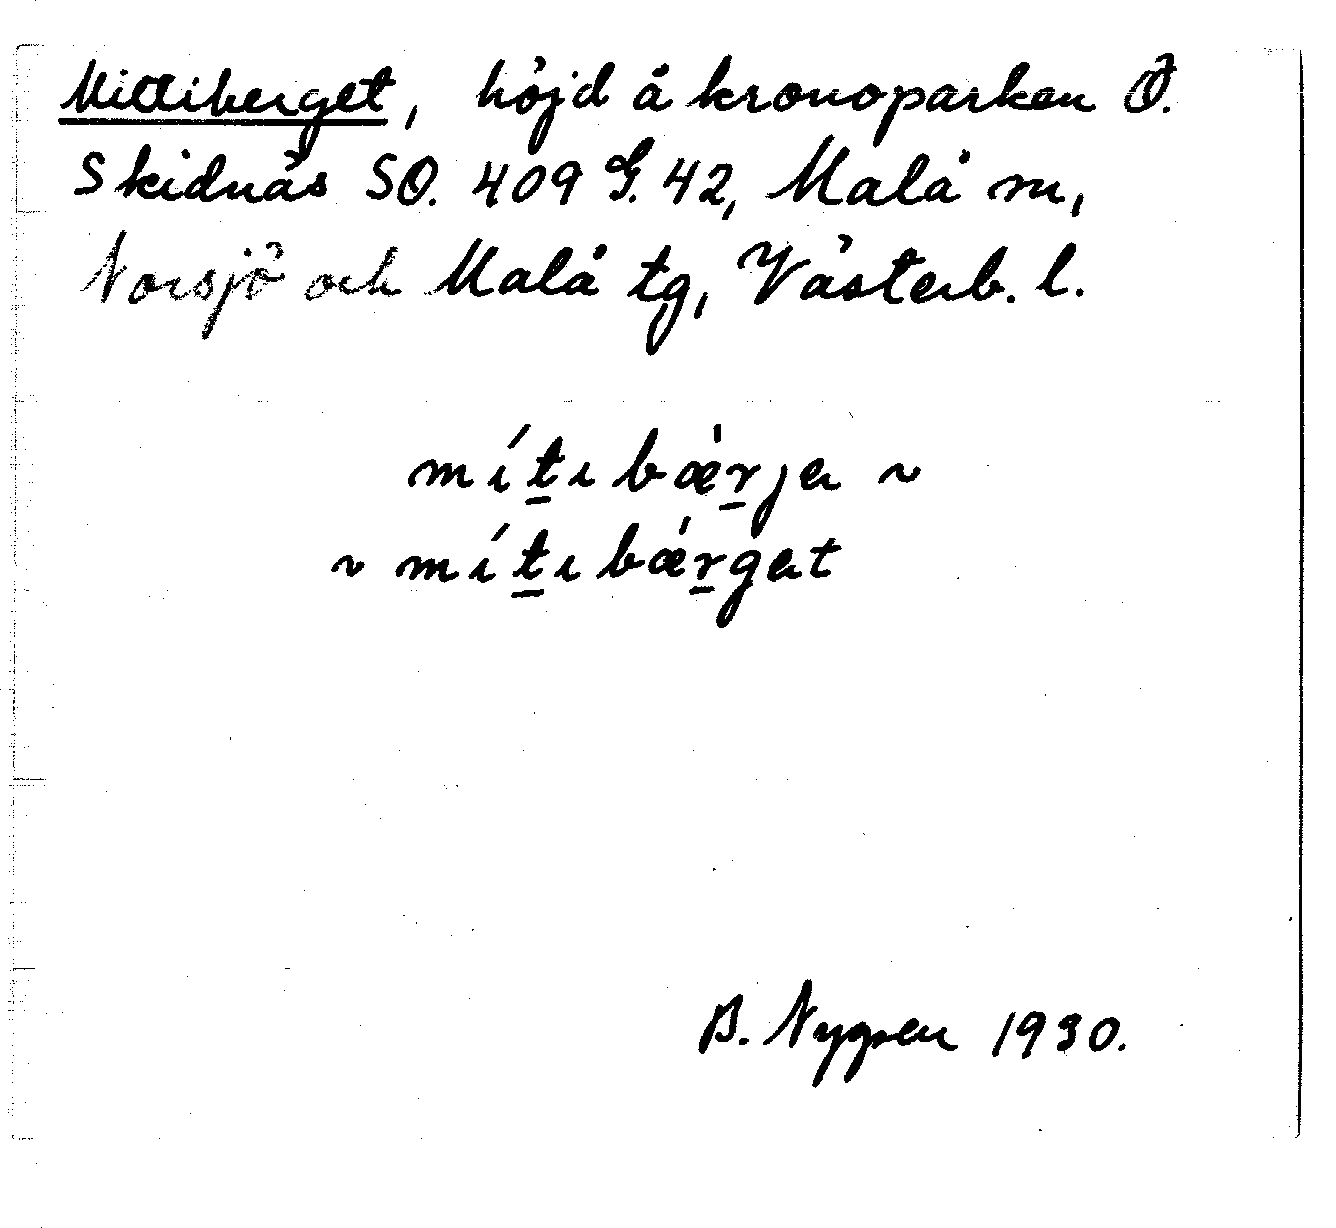 Mittiberget, höjd å kronoparken Ö.
Skidnäs SO. 409 G. 42, Malå sn,
Norsjö och Malå tg, Västerb. l.
mít̲ɩbæ̀r̲ja ~
~ mít̲ɩbǽr̲gat
B. Nygren 1930.